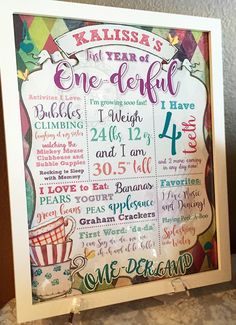 KALISSA'S
First YEAR of
One-derful
Activities I Love:
Bubbles
CLIMBING
laughing at my sister
watching the
Mickey Mouse
Clubhouse and
Bubble Guppies
Rocking is Sleep
with Mommy
I'm growing sooo fast!
I Weigh
24 lbs. 12 oz
and I am
30.5" tall
I Have
4
teeth
and 2 more coming
in any day now
I LOVE to Eat:
Bananas
PEARS YOGURT
green beans PEAS applesauce
Graham Crackers
First Word: "da-da"
Favorites:
I Love Music
and Dancing!
Playing Peek-A-Boo
Splashing
in the
Water
ONE-DERLAND